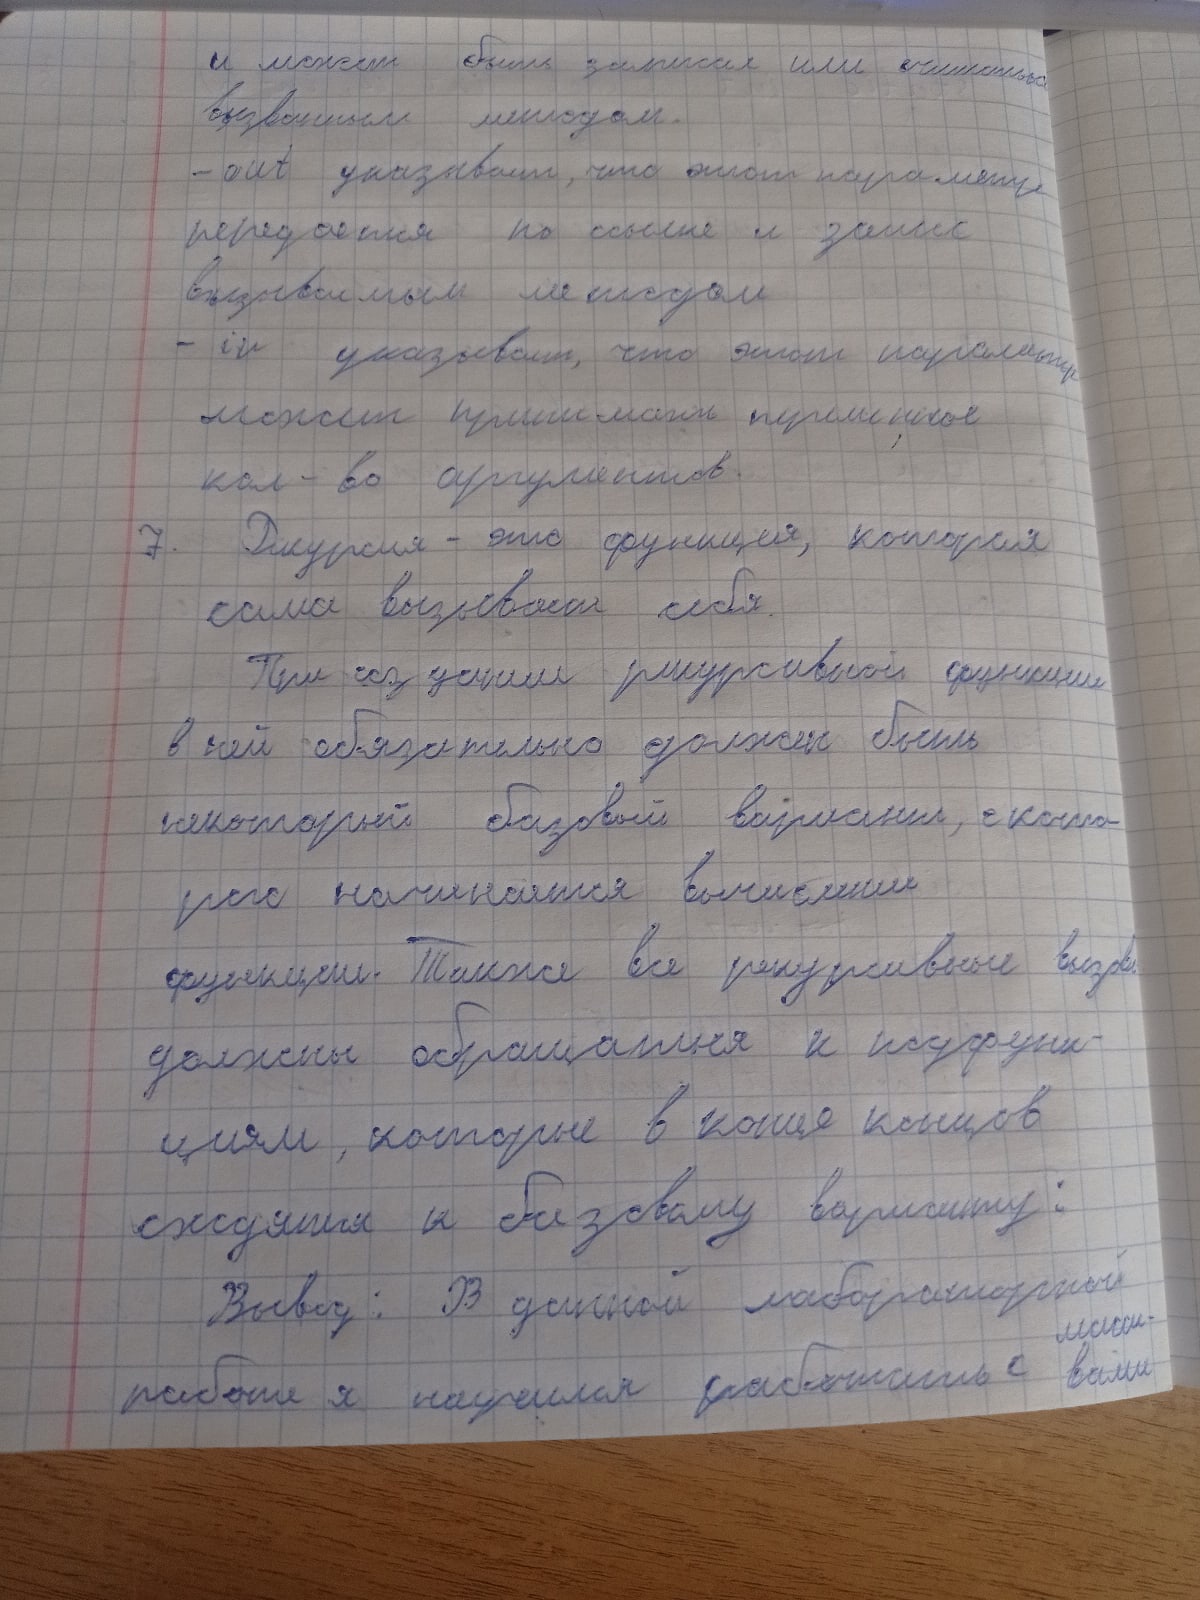 и может быть записан или считан
вызванным методом.
- out указывает, что этот параметр
передается по ссылке и запис
вызываемым методом
- in указывает, что этот параметр
может принимать переменное
кол-во аргументов.
7. Рекурсия - это функция, которая
сама вызывает себя.
При создании рекурсивной функции
в ней обязательно должен быть
некоторый базовый вариант, с кото-
рого начинается вычисление
функции. Также все рекурсивные вызовы
должны обращаться к подфунк-
циям, которые в конце концов
сходятся к базовому варианту:
Вывод: В данной лабораторной
работе я научился работать с масси-
вами